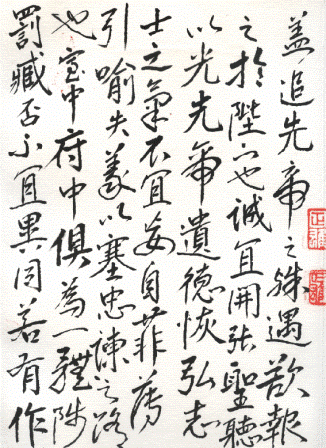 盖追先帝之殊遇欲報
之於陛下也誠宜開張聖聽
以光先帝遺德恢弘志
士之氣不宜妄自菲薄
引喻失義以塞忠諫之路
也宮中府中俱為一體陟
罰臧否不宜異同若有作